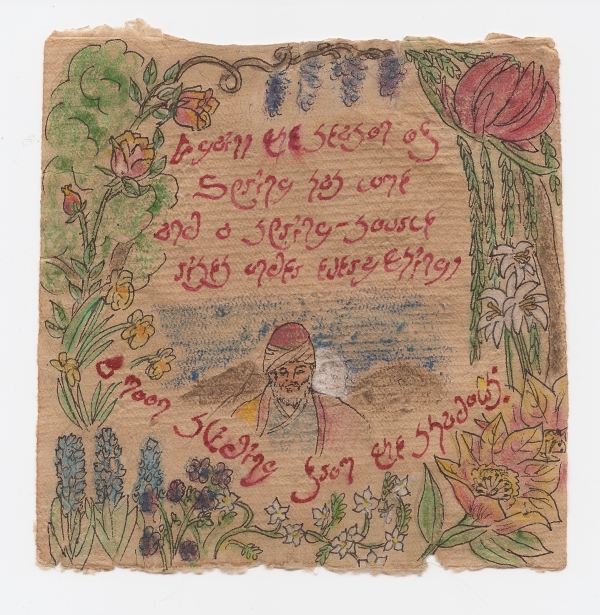 Again the season of
Spring has come
and a spring-source
rises under everything,
A moon sliding from the shadows.